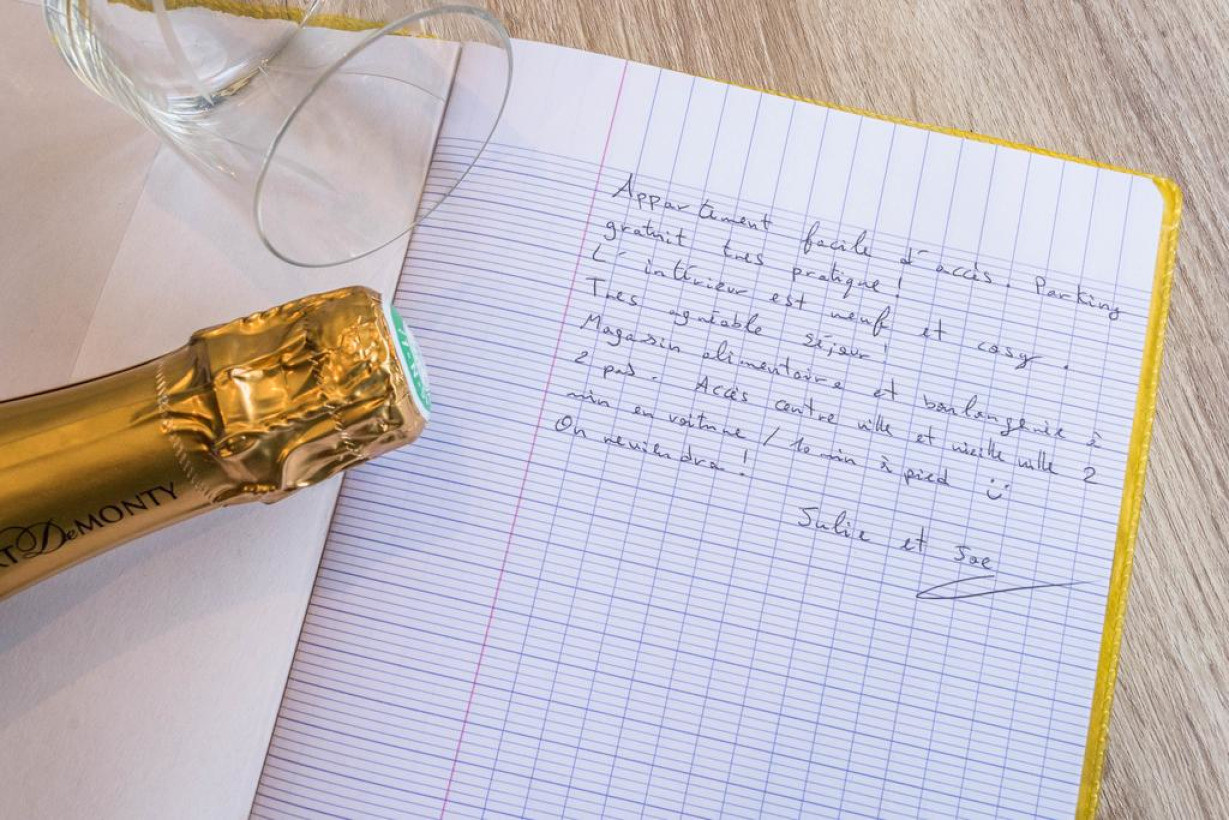 Appartement facile d'accès. Parking
gratuit très pratique !
L'intérieur est neuf et cosy.
Très agréable séjour !
Magasin alimentaire et boulangerie à
2 pas. Accès centre ville et vieille ville 2
min en voiture / 10 min à pied :)
On reviendra !
Julie et Joe
DeMONTY